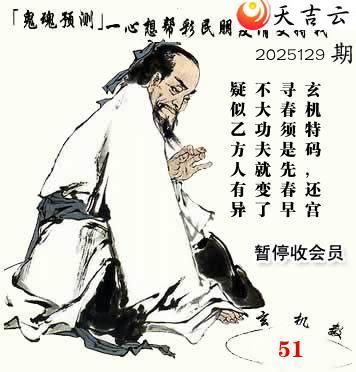 「鬼魂预测」一心想帮彩民朋
天吉云
2025129 期
玄机特码，还宫
寻春须是先春早
不大功夫就变了
疑似乙方人有异
暂停收会员
玄机
51